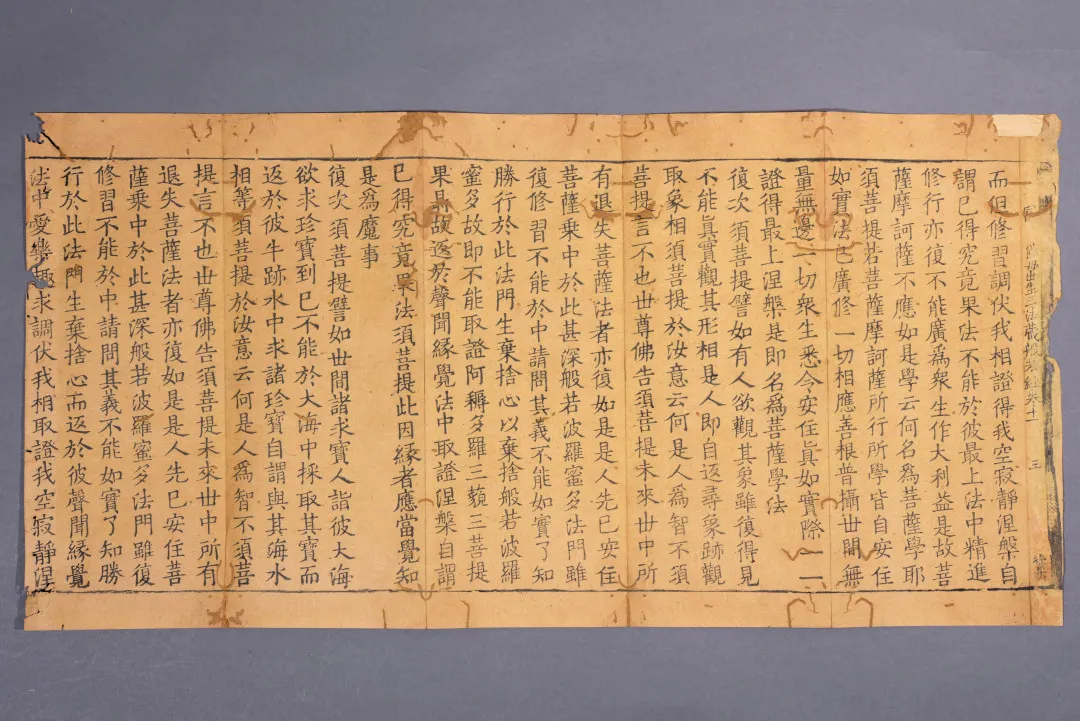 佛母出生三法藏般若經卷十一 三
而但修習調伏我相證得我空寂靜涅槃自
謂已得究竟果法不能於彼最上法中精進
修行亦復不能廣爲衆生作大利益是故菩
薩摩訶薩不應如是學云何名爲菩薩學耶
須菩提若菩薩摩訶薩所行所學皆自安住
如實法已廣修一切相應善根普攝世間無
量無邊一切衆生悉令安住眞如實際一一
證得最上涅槃是即名爲菩薩學法
復次須菩提譬如有人欲觀其象雖復得見
不能眞實觀其形相是人即自返尋象跡觀
取象相須菩提於汝意云何是人爲智不須
菩提言不也世尊佛告須菩提未來世中所
有退失菩薩法者亦復如是是人先已安住
菩薩乗中於此甚深般若波羅蜜多法門雖
復修習不能於中請問其義不能如實了知
勝行於此法門生棄捨心以棄捨般若波羅
蜜多故即不能取證阿耨多羅三藐三菩提
果是故返於聲聞緣覺法中取證涅槃自謂
已得究竟果法須菩提此因緣者應當覺知
是爲魔事
復次須菩提譬如世間諸求寶人詣彼大海
欲求珍寶到已不能於大海中採取其寶而
返於彼牛跡水中求諸珍寶自謂與其海水
相等須菩提於汝意云何是人爲智不須菩
提言不也世尊佛告須菩提未來世中所有
退失菩薩法者亦復如是是人先已安住菩
薩乗中於此甚深般若波羅蜜多法門雖復
修習不能於中請問其義不能如實了知勝
行於此法門生棄捨心而返於彼聲聞緣覺
法中愛樂趣求調伏我相取證我空寂靜涅